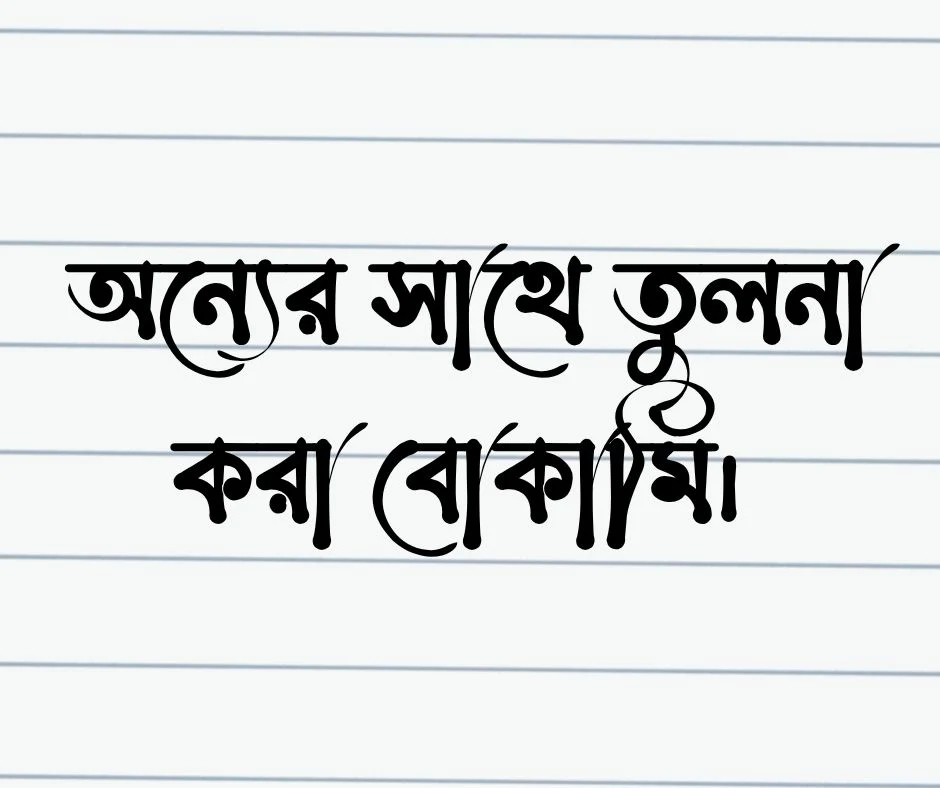 অন্যের সাথে তুলনা
করা বোকামি।